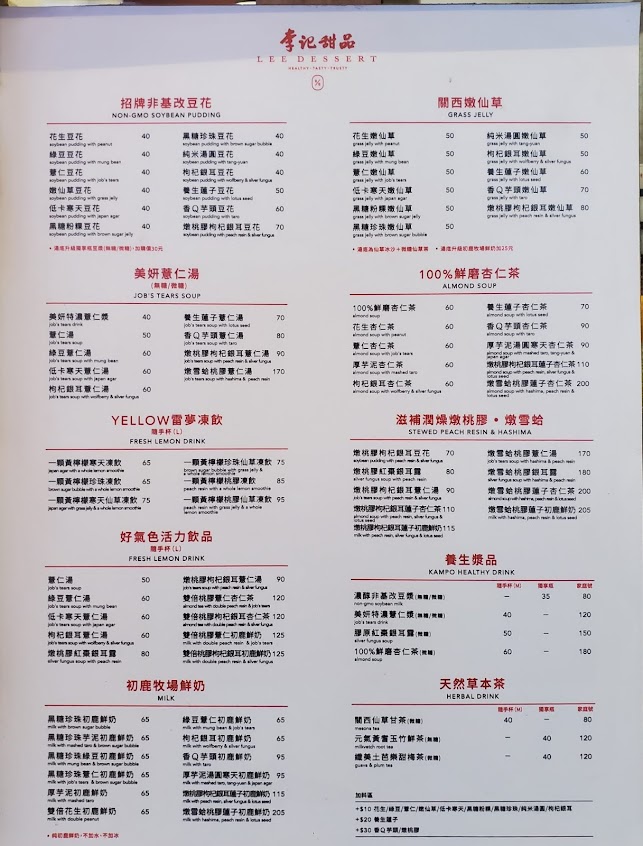 李记甜品
LEE DESSERT
HEALTHY·TASTY·TRUSTY
招牌非基改豆花
NON-GMO SOYBEAN PUDDING
花生豆花 40
soybean pudding with peanut
綠豆豆花 40
soybean pudding with mung bean
薏仁豆花 40
soybean pudding with job's tears
嫩仙草豆花 40
soybean pudding with grass jelly
低卡寒天豆花 40
soybean pudding with japan agar
黑糖粉粿豆花 40
soybean pudding with brown sugar jelly
黑糖珍珠豆花 40
soybean pudding with brown sugar bubble
純米湯圓豆花 40
soybean pudding with tang-yuan
枸杞銀耳豆花 40
soybean pudding with wolfberry & silver fungus
養生蓮子豆花 50
soybean pudding with lotus seed
香Q芋頭豆花 60
soybean pudding with taro
燉桃膠枸杞銀耳豆花 70
soybean pudding with peach resin & silver fungus
關西嫩仙草
GRASS JELLY
花生嫩仙草 50
grass jelly with peanut
綠豆嫩仙草 50
grass jelly with mung bean
薏仁嫩仙草 50
grass jelly with job's tears
低卡寒天嫩仙草 50
grass jelly with japan agar
黑糖粉粿嫩仙草 50
grass jelly with brown sugar jelly
黑糖珍珠嫩仙草 50
grass jelly with brown sugar bubble
純米湯圓嫩仙草 50
grass jelly with tang-yuan
枸杞銀耳嫩仙草 50
grass jelly with wolfberry & silver fungus
養生蓮子嫩仙草 60
grass jelly with lotus seed
香Q芋頭嫩仙草 70
grass jelly with taro
燉桃膠枸杞銀耳嫩仙草 80
grass jelly with peach resin & silver fungus
美妍薏仁湯
(無糖/微糖)
JOB'S TEARS SOUP
美妍特濃薏仁漿 40
job's tears drink
薏仁湯 50
job's tears soup
綠豆薏仁湯 60
job's tears soup with mung bean
低卡寒天薏仁湯 60
job's tears soup with japan agar
枸杞銀耳薏仁湯 60
job's tears soup with wolfberry & silver fungus
養生蓮子薏仁湯 70
job's tears soup with lotus seed
香Q芋頭薏仁湯 80
job's tears soup with taro
燉桃膠枸杞銀耳薏仁湯 90
job's tears soup with peach resin & silver fungus
燉雪蛤薏仁湯 170
job's tears soup with hashima & peach resin
100%鮮磨杏仁茶
ALMOND SOUP
100%鮮磨杏仁茶 60
almond soup
花生杏仁茶 60
almond soup with peanut
薏仁杏仁茶 60
almond soup with job's tears
厚芋泥杏仁茶 60
almond soup with mashed taro
枸杞銀耳杏仁茶 60
almond soup with wolfberry & silver fungus
養生蓮子杏仁茶 70
almond soup with lotus seed
香Q芋頭杏仁茶 90
almond soup with taro
厚芋泥湯圓寒天杏仁茶 90
almond soup with mashed taro, tang-yuan & japan agar
燉桃膠枸杞銀耳蓮子杏仁茶 110
almond soup with peach resin, silver fungus & lotus seed
燉雪蛤桃膠蓮子杏仁茶 200
almond soup with hashima, peach resin & lotus seed
YELLOW雷夢凍飲
隨手杯(L)
FRESH LEMON DRINK
一顆黃檸檬寒天凍飲 65
japan agar with a whole lemon smoothie
一顆黃檸檬珍珠凍飲 65
brown sugar bubble with a whole lemon smoothie
一顆黃檸檬寒天仙草凍飲 75
japan agar with grass jelly & a whole lemon smoothie
一顆黃檸檬珍珠仙草凍飲 75
brown sugar bubble with grass jelly & a whole lemon smoothie
一顆黃檸檬桃膠凍飲 85
peach resin with a whole lemon smoothie
一顆黃檸檬桃膠仙草凍飲 95
peach resin with grass jelly & a whole lemon smoothie
滋補潤燥燉桃膠·燉雪蛤
STEWED PEACH RESIN & HASHIMA
燉桃膠枸杞銀耳豆花 70
soybean pudding with peach resin & silver fungus
燉桃膠紅棗銀耳露 80
silver fungus soup with peach resin
燉桃膠枸杞銀耳薏仁湯 90
job's tears soup with peach resin & silver fungus
燉桃膠枸杞銀耳蓮子杏仁茶 110
almond soup with peach resin, silver fungus & lotus seed
燉桃膠枸杞銀耳蓮子初鹿鮮奶 115
milk with peach resin, silver fungus & lotus seed
燉雪蛤桃膠薏仁湯 170
job's tears soup with hashima & peach resin
燉雪蛤桃膠銀耳露 180
silver fungus soup with hashima & peach resin
燉雪蛤桃膠蓮子杏仁茶 200
almond soup with hashima, peach resin & lotus seed
燉雪蛤桃膠蓮子初鹿鮮奶 205
milk with hashima, peach resin & lotus seed
好氣色活力飲品
隨手杯(L)
FRESH LEMON DRINK
薏仁湯 50
job's tears soup
綠豆薏仁湯 60
job's tears soup with mung bean
低卡寒天薏仁湯 60
job's tears soup with japan agar
枸杞銀耳薏仁湯 60
job's tears soup with wolfberry & silver fungus
燉桃膠紅棗銀耳露 80
silver fungus soup with peach resin
燉桃膠枸杞銀耳薏仁湯 90
job's tears soup with peach resin & silver fungus
雙倍桃膠薏仁杏仁茶 120
almond tea with double peach resin & job's tears
雙倍桃膠枸杞銀耳杏仁茶 120
almond tea with double peach resin & silver fungus
雙倍桃膠薏仁初鹿鮮奶 125
milk with double peach resin & job's tears
雙倍桃膠枸杞銀耳初鹿鮮奶 125
milk with double peach resin & silver fungus
養生漿品
KAMPO HEALTHY DRINK
隨手杯(M) 獨享瓶 家庭號
濃醇非基改豆漿(無糖/微糖) — 35 80
non-gmo soybean milk
美妍特濃薏仁漿(無糖/微糖) 40 — 120
job's tears drink
膠原紅棗銀耳露(微糖) 50 — 150
silver fungus soup
100%鮮磨杏仁茶(微糖) 60 — 180
almond soup
初鹿牧場鮮奶
MILK
黑糖珍珠初鹿鮮奶 65
milk with brown sugar bubble
黑糖珍珠芋泥初鹿鮮奶 65
milk with mashed taro & brown sugar bubble
黑糖珍珠綠豆初鹿鮮奶 65
milk with mung bean & brown sugar bubble
黑糖珍珠薏仁初鹿鮮奶 65
milk with job's tears & brown sugar bubble
厚芋泥初鹿鮮奶 65
milk with mashed taro
雙倍花生初鹿鮮奶 65
milk with double peanut
綠豆薏仁初鹿鮮奶 65
milk with mung bean & job's tears
枸杞銀耳初鹿鮮奶 65
milk with wolfberry & silver fungus
香Q芋頭初鹿鮮奶 95
milk with taro
厚芋泥湯圓寒天初鹿鮮奶 95
milk with mashed taro, tang-yuan & japan agar
燉桃膠枸杞銀耳蓮子初鹿鮮奶 115
milk with peach resin, silver fungus & lotus seed
燉雪蛤桃膠蓮子初鹿鮮奶 205
milk with hashima, peach resin & lotus seed
• 純初鹿鮮奶，不加水、不加冰
天然草本茶
HERBAL DRINK
隨手杯(M) 獨享瓶 家庭號
關西仙草甘茶(微糖) 40 — 80
mesona tea
元氣黃耆玉竹鮮茶(無糖) — 40 120
milkvetch root tea
纖美土芭樂甜梅茶(微糖) — 40 120
guava & plum tea
加料區
+$10 花生/綠豆/薏仁/嫩仙草/低卡寒天/黑糖粉粿/黑糖珍珠/純米湯圓/枸杞銀耳
+$20 養生蓮子
+$30 香Q芋頭/燉桃膠